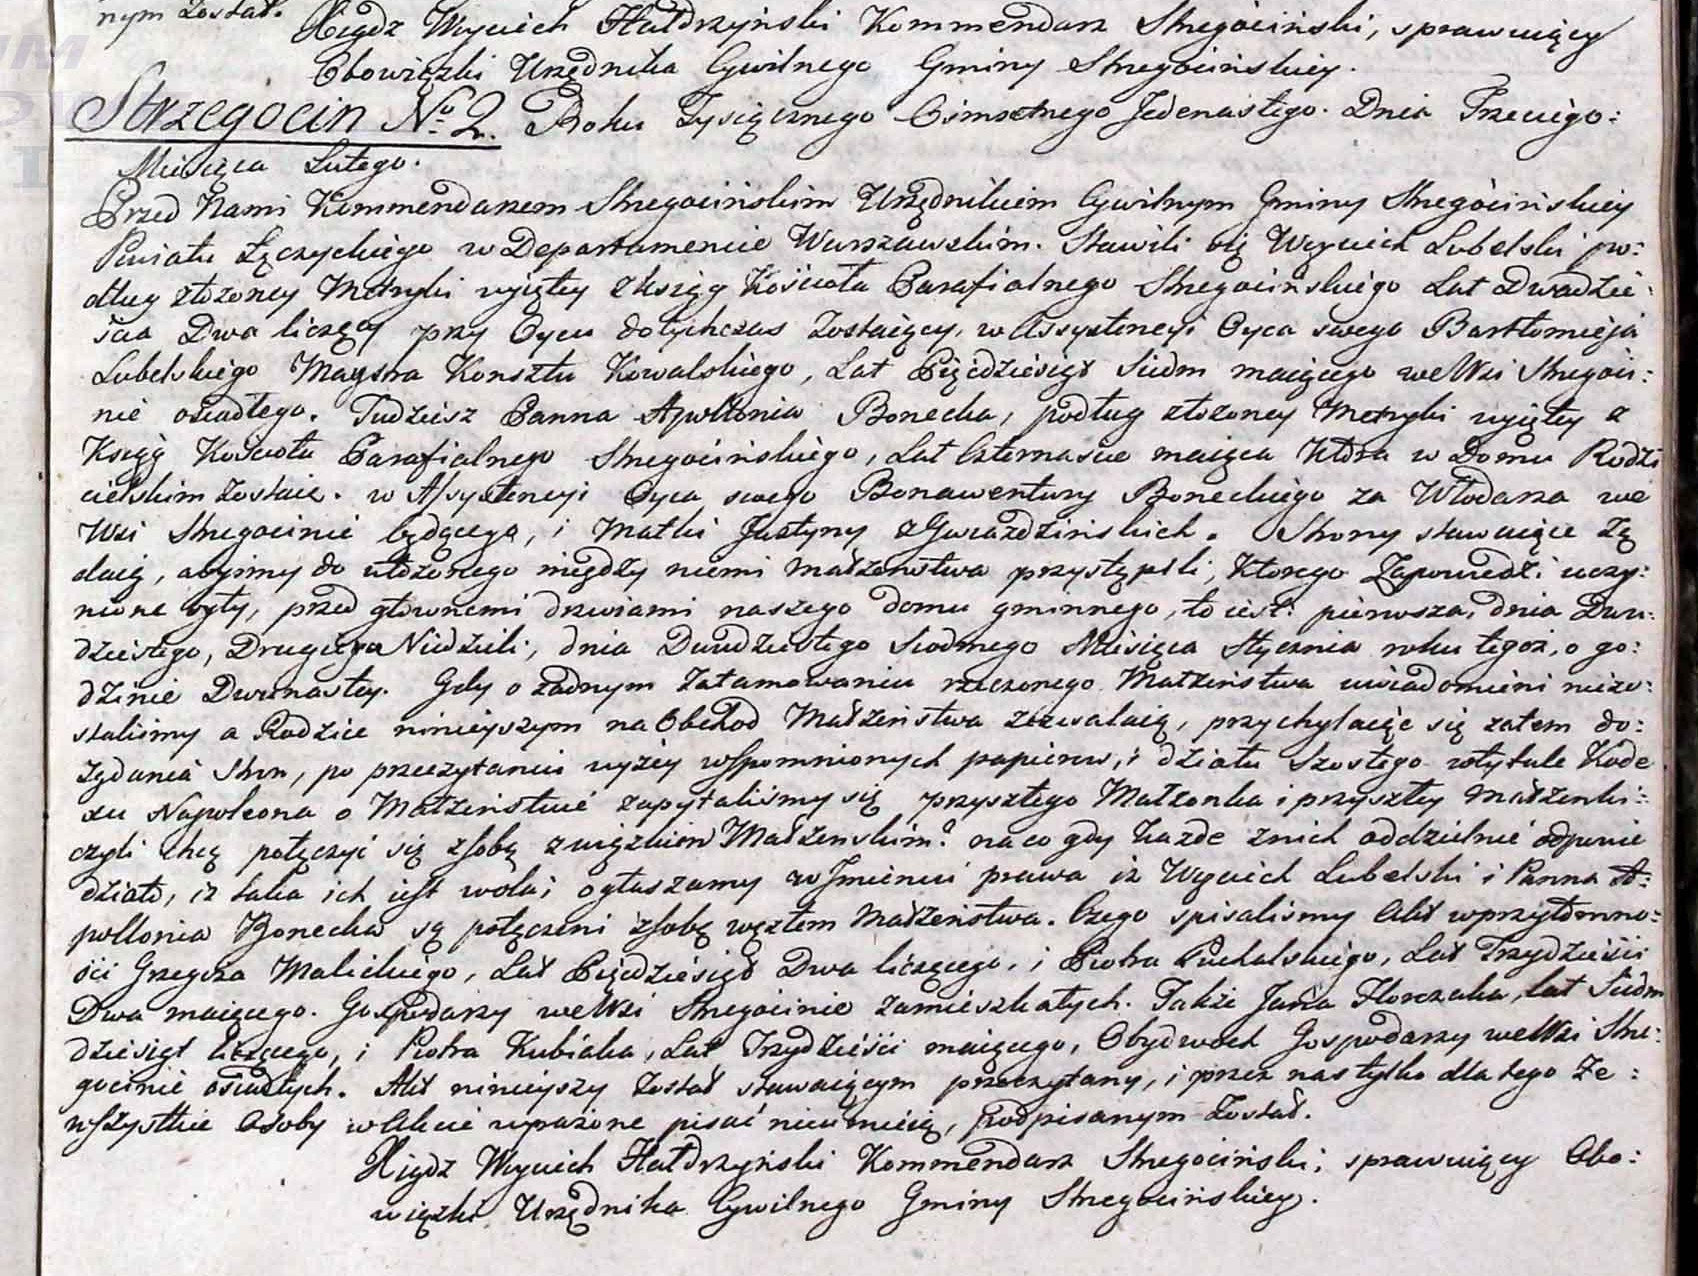 nym został.
Xiądz Woyciech Hałdrzyński Kommendarz Strzegociński, sprawuiący
Obowiązki Urzędnika Cywilnego Gminy Strzegocińskiey.
Strzegocin No 2. Roku Tysiącznego Ośmsetnego Jedenastego. Dnia Trzeciego:
Miesiąca Lutego.
Przed Nami Kommendarzem Strzegocińskim Urzędnikiem Cywilnym Gminy Strzegocińskiey
Powiatu Łęczyckiego w Departamencie Warszawskim. Stawili się Woyciech Lubelski po:
dług złożoney Metryki wyiętey z Ksiąg Kościoła Parafialnego Strzegocińskiego Lat Dwadzie:
ścia Dwa liczący przy Oycu dotychczas zostaiący, w Assystencyi Oyca swego Bartłomieja
Lubelskiego Maystra Konsztu Kowalskiego, Lat Pięćdziesiąt Siedm maiącego we Wsi Strzegoci:
nie osiadłego. Tudziesz Panna Apollonia Bonecka, podług złożoney Metryki wyiętey z
Ksiąg Kościoła Parafialnego Strzegocińskiego, Lat Czternaście maiąca Która w Domu Rodzi
cielskim zostaie. w Assystencyi Oyca swego Bonawentury Boneckiego za Włodarza we
Wsi Strzegocinie będącego, i Matki Justyny z Gwiazdzińskich. Strony stawaiące żą
daią, abyśmy do ułożonego między niemi małżeństwa przystąpili, którego Zapowiedzi uczy:
nione były, przed głównemi drzwiami naszego domu gminnego, to iest: pierwsza dnia Dwu:
dziestego, Druga Niedzieli, dnia Dwudziestego Siodmego Miesiąca Stycznia roku tegoż, o go:
dzinie Dwunastey. Gdy o żadnym zatamowaniu rzeczonego Małżeństwa uwiadomieni niezo:
staliśmy a Rodzice ninieyszym na Obchod Małżeństwa zezwalaią, przychylaiąc się zatem do:
żądania Stron, po przeczytaniu wyżey wspomnionych papierow, i działu Szostego w tytule Kode
xu Napoleona o Małżeństwie zapytaliśmy się przyszłego Małżonka i przyszłey małżonki:
czyli chcą połączyć się z sobą związkiem Małżenskim? na co gdy każde z nich oddzielnie odpowie
działo, iż taka ich iest wola; ogłaszamy w Jmieniu prawa iż Woyciech Lubelski i Panna A:
pollonia Bonecka są połączeni z sobą węzłem Małżeństwa. Czego spisaliśmy Akt w przytomno:
ści Grzegorza Malickiego, Lat Pięćdziesiąt Dwa liczącego, i Piotra Puchalskiego, Lat Trzydzieści
Dwa maiącego. Gospodarzy we Wsi Strzegocinie zamieszkałych. Także Jana Florczaka, lat Siedm
dziesiąt liczącego, i Piotra Kubiaka, Lat Trzydzieści maiącego, Obydwoch Gospodarzy we Wsi Strze:
gocinie osiadłych. Akt ninieyszy został stawaiącym przeczytany, i przez nas tylko dla tego że:
wszystkie Osoby w Akcie wyrażone pisać nieumieią, podpisanym został.
Xiądz Woyciech Hałdrzyński Kommendarz Strzegociński; sprawuiący Obo:
wiązki Urzędnika Cywilnego Gminy Strzegocińskiey.